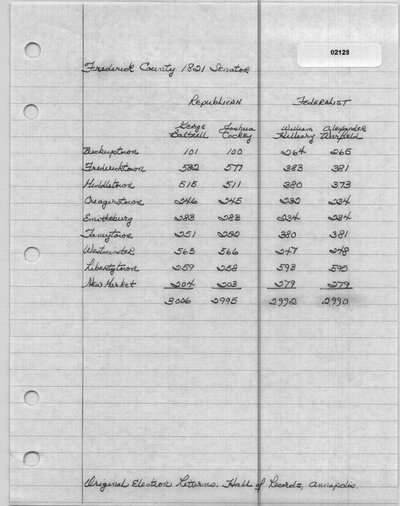 02123
Frederick County 1821 Senator
Republican Federalist
George Joshua William Alexander
Baltzell Cockey Hilleary Warfield
Buckeystown 101 100 264 265
Fredericktown 582 577 383 381
Middletown 515 511 380 373
Creagerstown 246 245 232 234
Emmitsburg 283 283 234 234
Taneytown 251 252 380 381
Westminster 565 566 247 248
Libertytown 259 258 593 595
New Market 204 203 279 279
3006 2995 2992 2990
Original Election Returns, Hall of Records, Annapolis.